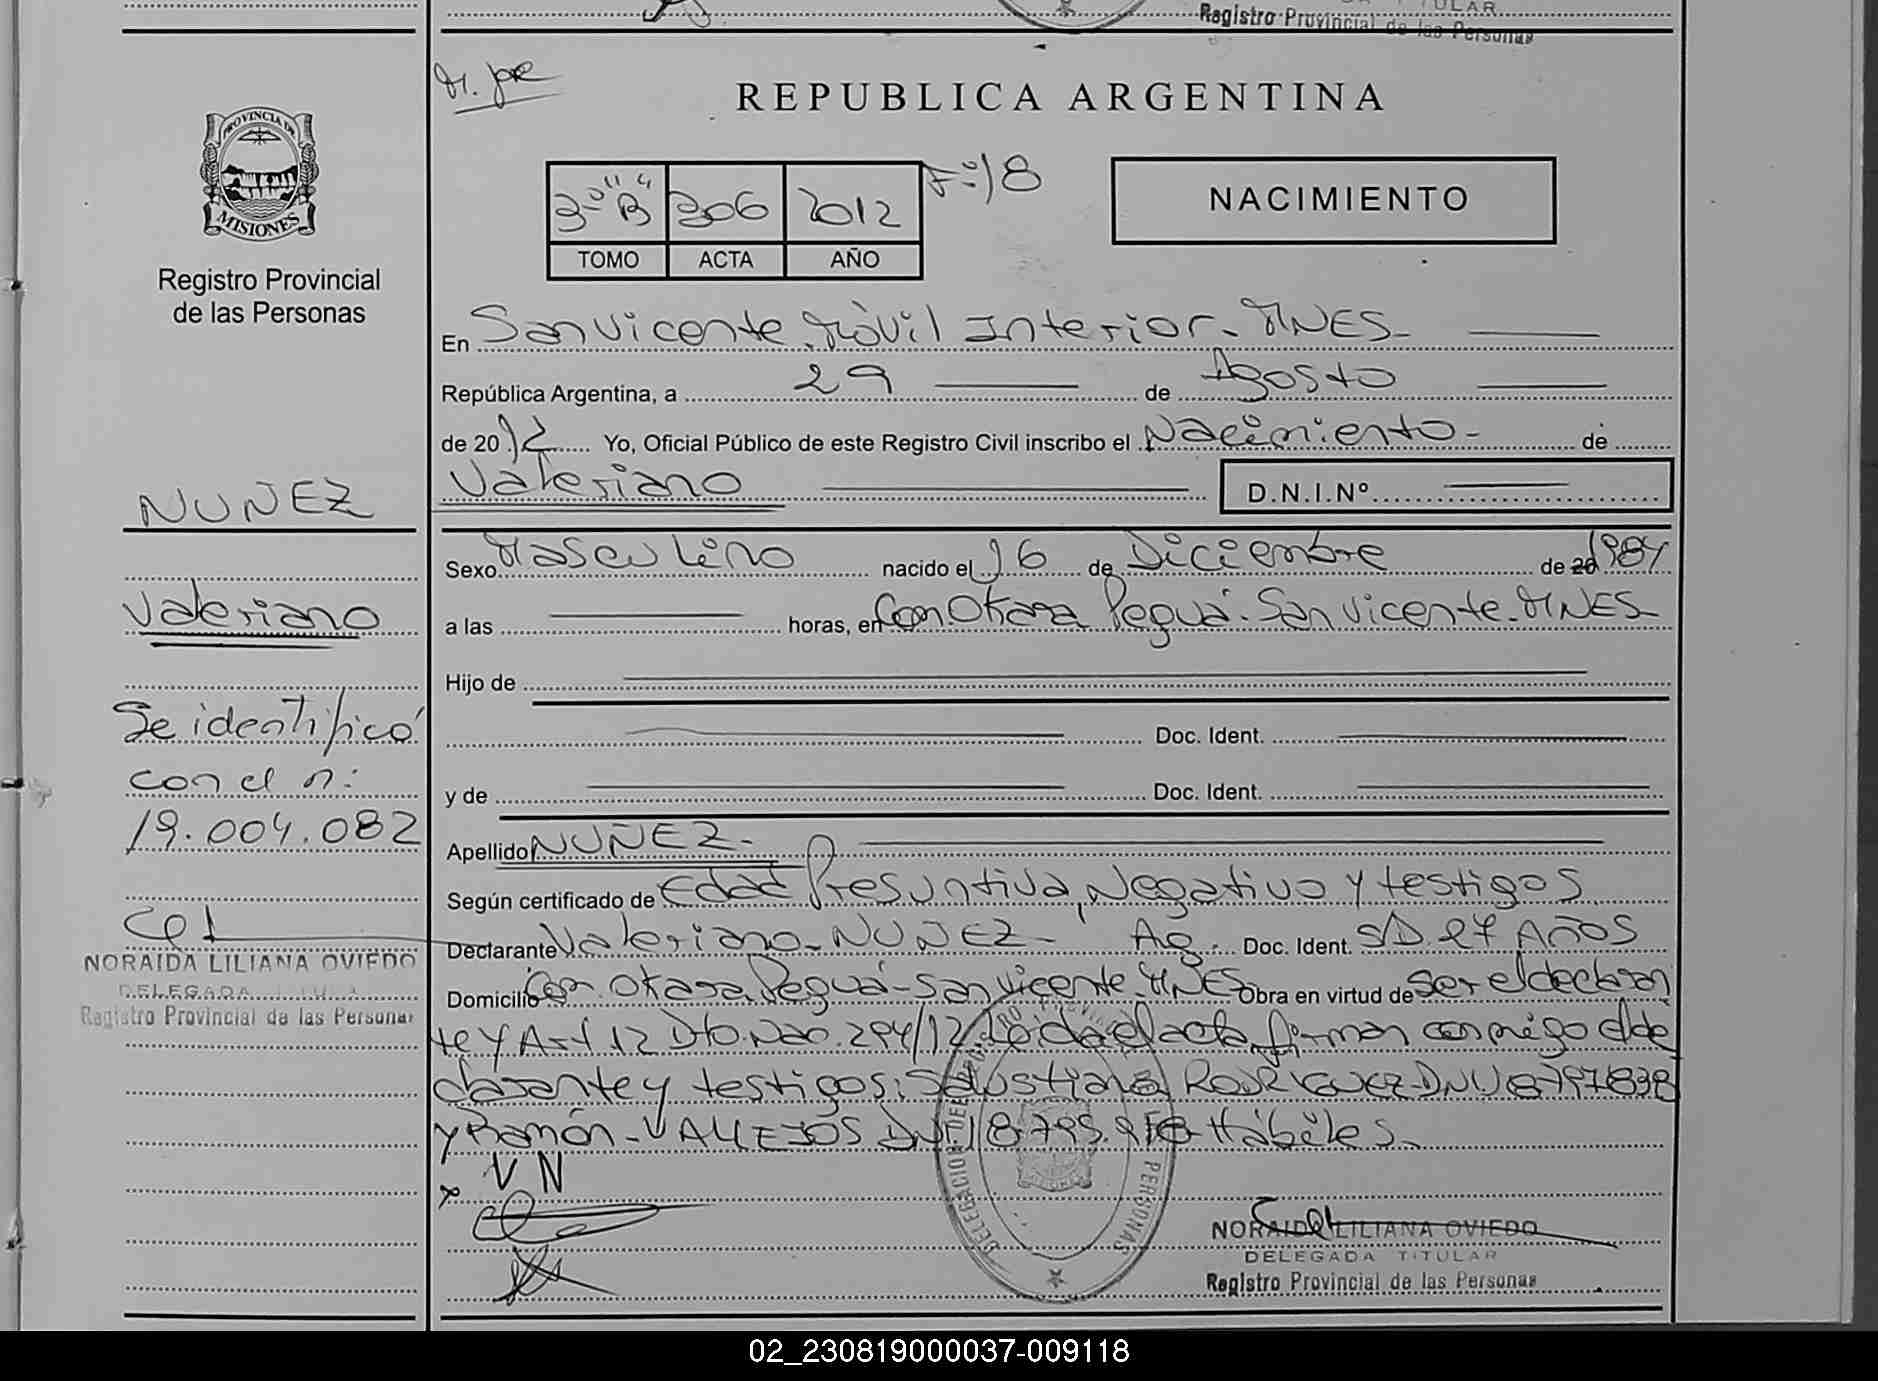 TULAR
Registro Provincial de las Personas
REPUBLICA ARGENTINA
PROVINCIA DE
MISIONES
Registro Provincial
de las Personas
3º "B" 306 2012 Fº:18
TOMO ACTA AÑO
NACIMIENTO
En San Vicente Móvil Interior - MNES -
República Argentina, a 29 de Agosto
de 2012 Yo, Oficial Público de este Registro Civil inscribo el Nacimiento - de
Valeriano D.N.I.Nº
NUÑEZ
Valeriano
Se identificó
con el n:
19.004.082
NORAIDA LILIANA OVIEDO
DELEGADA TITULAR
Registro Provincial de las Personas
Sexo Masculino nacido el 16 de Diciembre de 20 1984
a las horas, en Com Okara Peguá - San Vicente - MNES -
Hijo de
Doc. Ident.
y de Doc. Ident.
Apellido NUÑEZ -
Según certificado de Edad Presuntiva, Negativo y testigos
Declarante Valeriano - NUÑEZ - Ag. Doc. Ident. S/D. 27 AÑOS
Domicilio Com Okara Peguá - San Vicente MNES Obra en virtud de ser el declaran
te y Art 12 Dto. Nac. 294/12 Leída el acta, firman conmigo el de
clarante y testigos: Salustiano RODRIGUEZ DNI 18.797.838
y Ramón - VALLEJOS DNI 18.795. Hábiles -
V N
DELEGACION DEL REGISTRO PROVINCIAL PERSONAS
NORAIDA LILIANA OVIEDO
DELEGADA TITULAR
Registro Provincial de las Personas
02_230819000037-009118